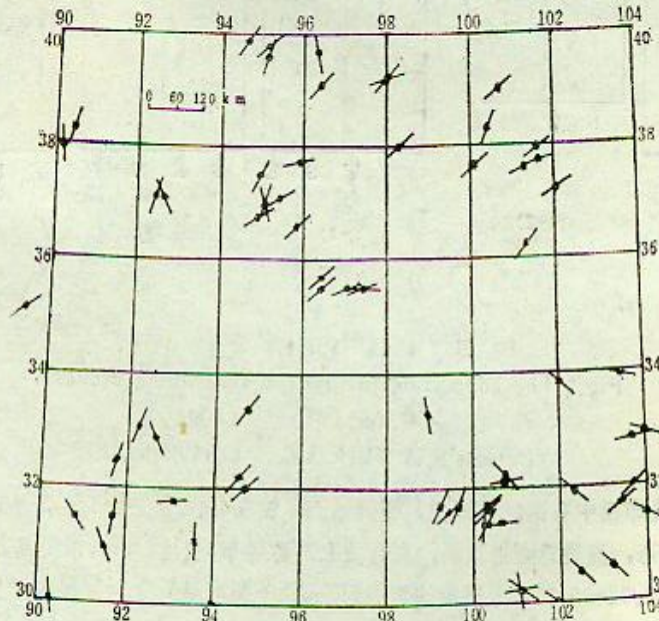 90 92 94 96 98 100 102 104
40 40
0 60 120 km
38 38
36 36
34 34
32 32
30
90 92 94 96 98 100 102 104